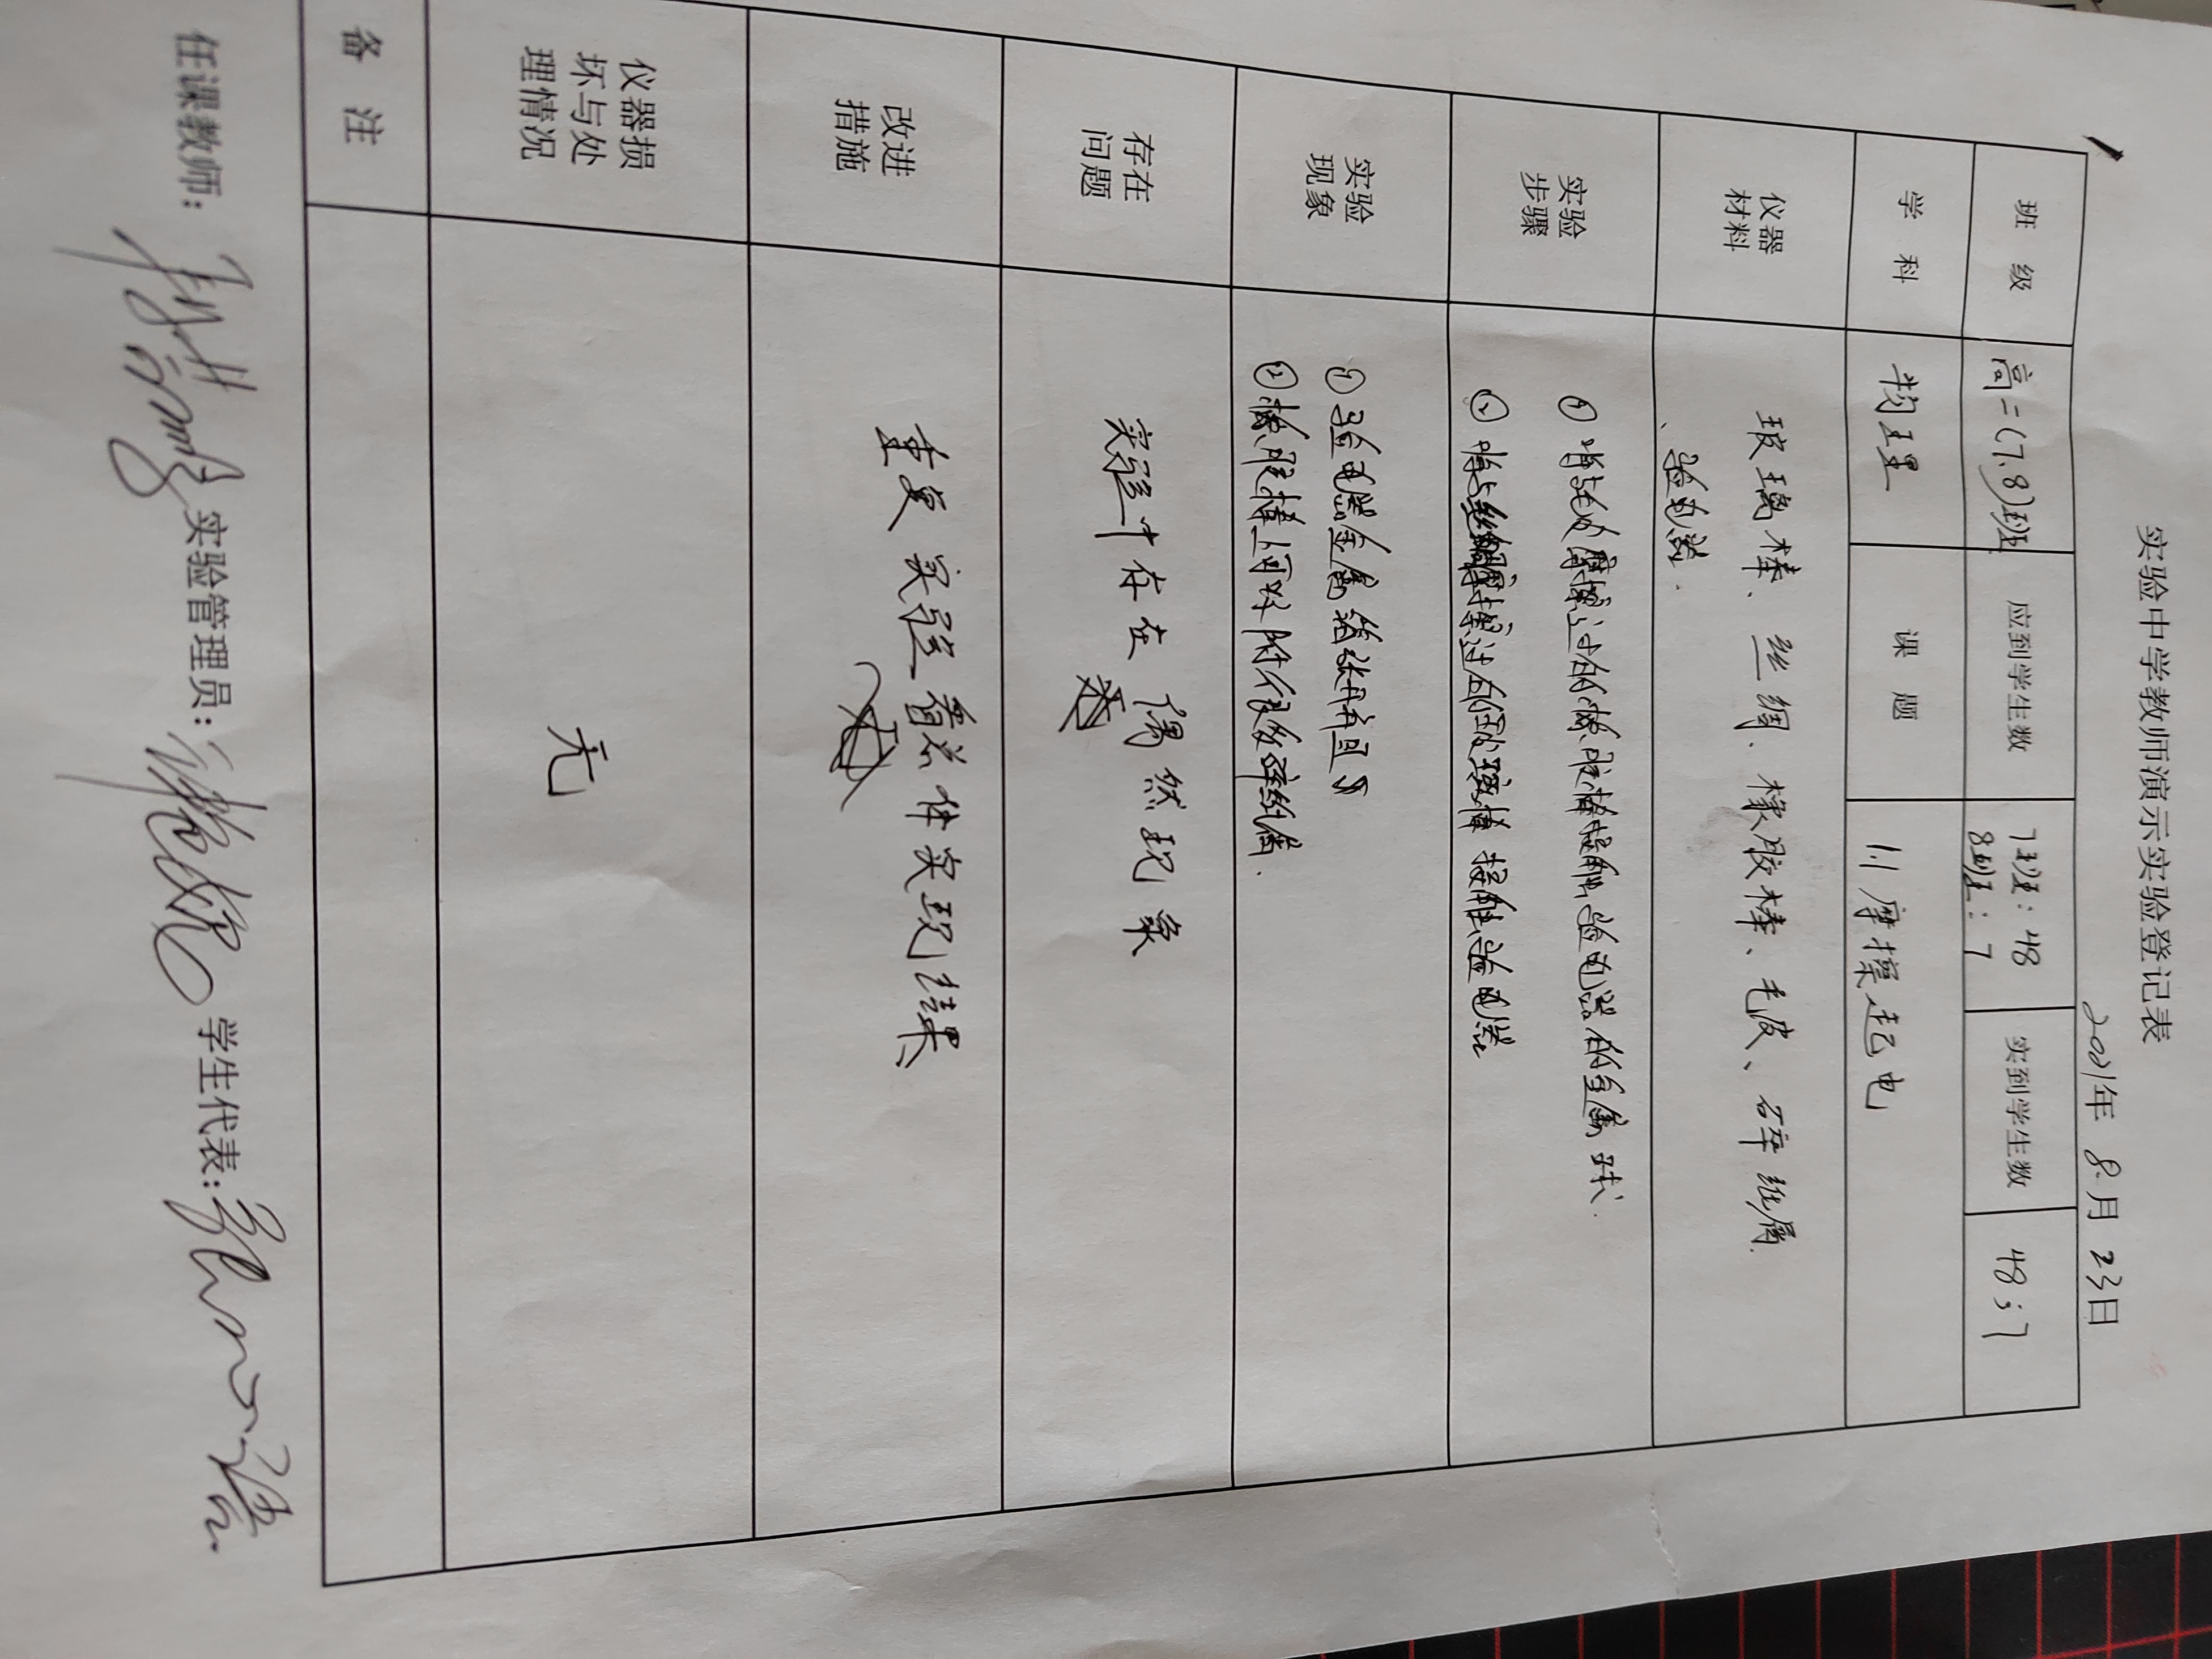 实验中学教师演示实验登记表
2021年 8月 23日
班 级 高二(7、8)班 应到学生数 7班:48 实到学生数 48;7
8班:7
学 科 物理 课 题 1.1 摩擦起电
仪器
材料
玻璃棒、丝绸、橡胶棒、毛皮、碎纸屑
、验电器.
实验
步骤
① 将与毛皮摩擦过的橡胶棒接触验电器的金属球.
② 将与丝绸摩擦过的玻璃棒接触验电器
实验
现象
① 验电器金属箔张开
② 橡胶棒上可以附很多碎纸屑.
存在
问题
实验中存在 偶然现象
改进
措施
重复实验 看总体实现结果
仪器损
坏与处
理情况
无
备 注
任课教师: 实验管理员: 学生代表: